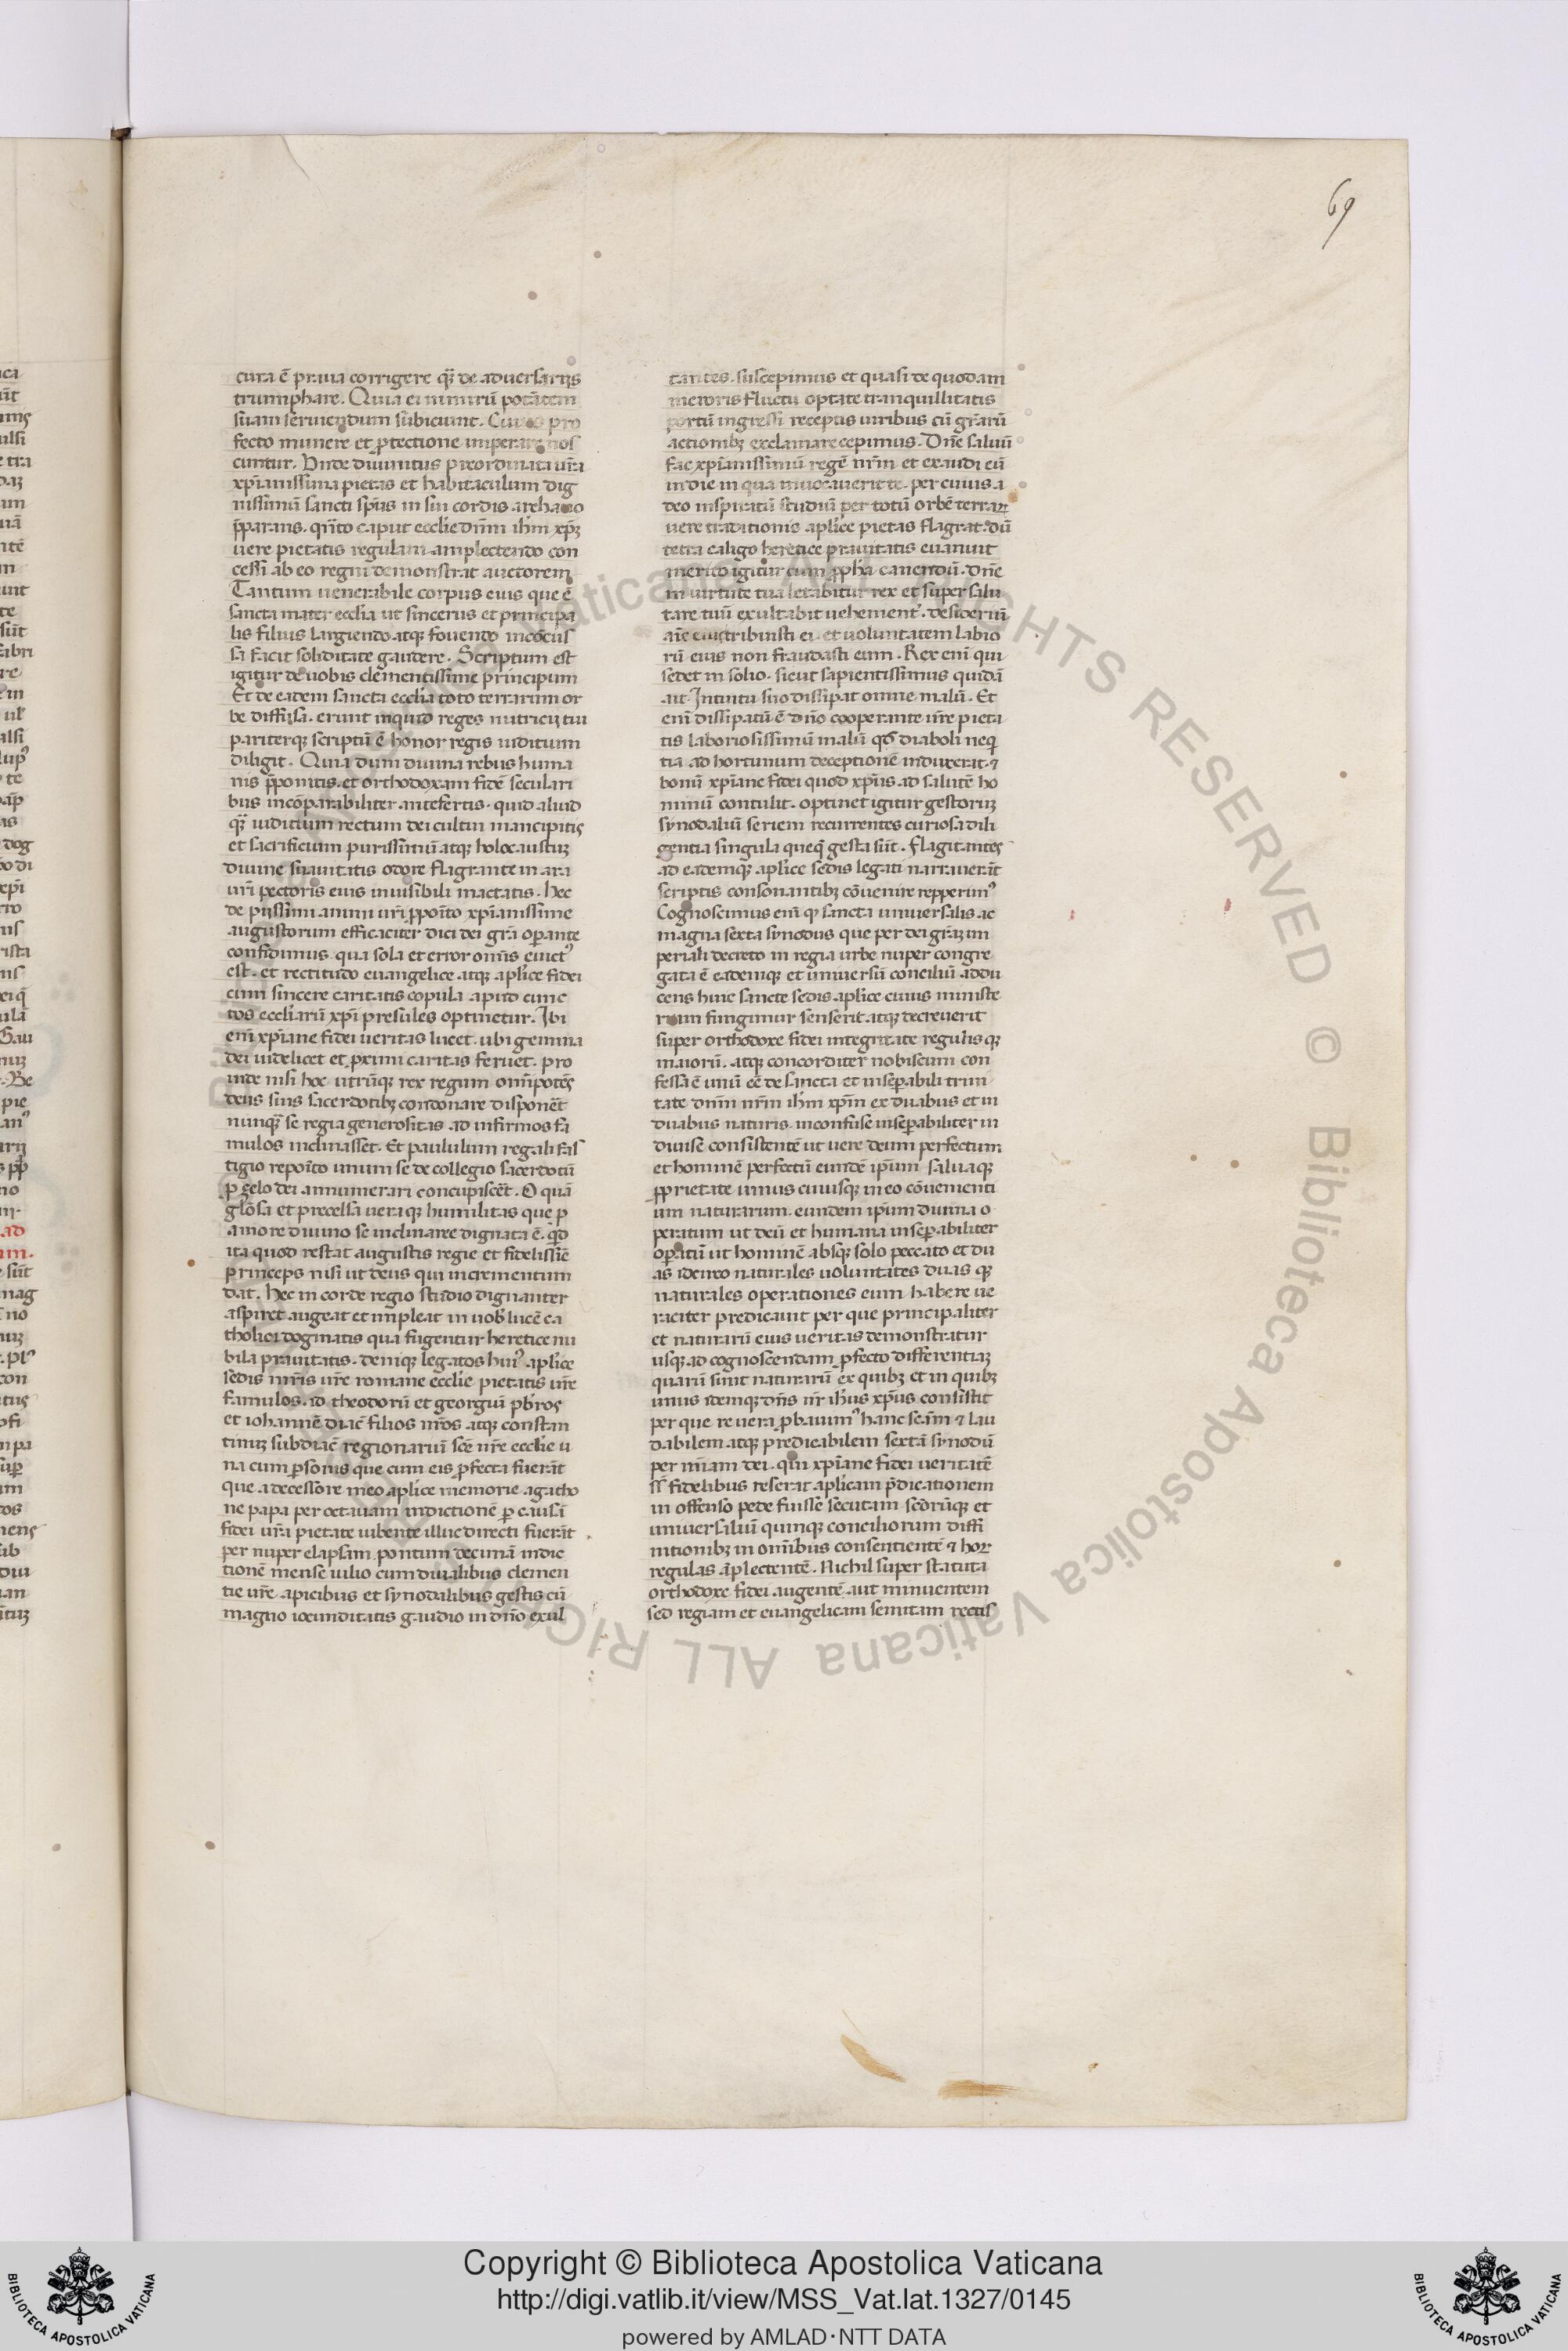 69
cura ē praua corrigere q̄ȝ de aduersarijs
triumphare. Quia ei nimirū potētem
suam seruiendum subiciunt. Cuius pro
fecto munere et ꝓtectione imperare nos
cuntur. Vnde diuinitus preordinata ur̄a
xp̄ianissima pietas et habitaculum dig
nissimū sancti sp̄us in sui cordis archano
p̄parans. qn̄to caput ecclie dn̄m ihm̄ xp̄ȝ
uere pietatis regulam amplectendo con
cessi ab eo regni demonstrat auctorem
Tantum uenerabile corpus eius que ē
sancta mater ecclia ut sincerus et principa
lis filius largiendo atqȝ fouendo incōcus
sa facit soliditate gaudere. Scriptum est
igitur de uobis clementissime principum
Et de eadem sancta ecclia toto terrarum or
be diffusa. erunt inquid reges nutricij tui
pariterqȝ scriptū ē honor regis iuditium
diligit. Quia dum diuina rebus huma
nis p̄ponitis. et orthodoxam fidē seculari
bus incōparabiliter antefertis. quid aliud
q̄ȝ iuditium rectum dei cultui mancipitis
et sacrificium purissimū atqȝ holocaustuȝ
diuine suauitatis odore flagrante in ara
ur̄i pectoris eius inuisibili mactatis. Hec
de pijssimi animi ur̄i ꝓpoīto xp̄ianissime
augustorum efficaciter dici dei gr̄a oꝑante
confidimus. qua sola et error om̄is euict⁹
est. et rectitudo euangelice atqȝ apl̄ice fidei
cum sincere caritatis copula apud cunc
tos eccliarū xp̄i presules optinetur. Ibi
eni xp̄iane fidei ueritas lucet. ubi gemina
dei uidelicet et ꝓximi caritas feruet. pro
inde nisi hoc utrūqȝ rex regum omīpotēs
deus suis sacerdotibȝ condonare disponēt
nunq̄ȝ se regia generositas ad infirmos fa
mulos inclinasset. Et paululum regali fas
tigio repoīto unum se de collegio sacerdotū
ꝑ zelo dei annumerari concupiscēt. O quā
glōsa et precelsa ueraqȝ humilitas que ꝑ
amore diuino se inclinare dignata ē. qd̄
ita quod restat augustis regie et fidelissīe
princeps nisi ut deus qui incrementum
dat. Hec in corde regio studio dignanter
aspiret augeat et impleat in uob̄ lucē ca
tholici dogmatis qua fugentur heretice nu
bila prauitatis. denique legatos hui⁹ apl̄ice
sedis nr̄is ur̄e romane ecclie pietatis ur̄e
famulos. id theodorū et georgiū pb̄ros
et iohannē diac̄ filios nr̄os atqȝ constan
tinuȝ subdiac̄ regionariū sc̄e nr̄e ecclie u
na cum ꝑsonis que cum eis ꝓfecta fuerāt
que a decessore meo apl̄ice memorie agatho
ne papa per octauam indictionē ꝑ causa
fidei ur̄a pietate iubente illuc directi fuerāt
per nuper elapsam pontum decimā indic
tionē mense iulio cum diuialibus clemen
tie ur̄e apicibus et synodalibus gestis cū
magno iocunditatis gaudio in dn̄o exul
tantes. suscepimus et quasi de quodam
meroris fluctu optate tranquillitatis
portū ingressi receptis uiribus cū gr̄arū
actionibȝ exclamare cepimus. Dn̄e saluū
fac xp̄ianissimū regē nr̄m et exaudi eū
in die in qua inuocauerit te. per cuius a
deo inspiratū studiū per totū orbē terraꝝ
uere traditionis apl̄ice pietas flagrat. dū
tetra caligo heretice prauitatis euanuit
merito igitur cum ꝓpha canendū. dn̄e
in uirtute tua letabitur rex et super salu
tare tuū exultabit uehement̄. desideriū
aīe eius tribuisti ei. et uoluntatem labio
rū eius non fraudasti eum. Rex eni qui
sedet in solio. sicut sapientissimus quidā
ait. Intuitu suo dissipat omne malū. Et
eni dissipatū ē dn̄o cooperante ur̄e pieta
tis laboriosissimū malū qd̄ diaboli neq̄
tia ad hominum deceptionē induxerat. ⁊
bonū xp̄iane fidei quod xp̄us ad salutē ho
minū contulit. optinet igitur gestoruȝ
synodaliū seriem recurrentes curiosa dili
gentia singula queq̄ gesta sūt. flagitantes
ad eademqȝ apl̄ice sedis legati narrauerāt
scriptis consonantibȝ cōuenire repperim⁹
Cognoscimus eni qȝ sancta uniuersalis ac
magna sexta synodus que per dei gr̄aȝ im
periali decreto in regia urbe nuper congre
gata ē eademque et uniuersū conciliū addu
cens huic sancte sedis apl̄ice cuius ministe
rium fungimur senserit atqȝ decreuerit
super orthodoxe fidei integritate regulisqȝ
maiorū. atqȝ concorditer nobiscum con
fessa ē unū eē de sancta et inseꝑabili trini
tate dn̄m nr̄m ihm̄ xp̄m ex duabus et in
duabus naturis. inconfuse inseꝑabiliter in
diuise consistentē ut uere deum perfectum
et hominē perfectū eundē ip̄um saluaqȝ
ꝓprietate unius cuiusqȝ in eo cōuenienti
um naturarum. eundem ip̄um diuina o
peratum ut deū et humana inseꝑabiliter
oꝑatū ut hominē absqȝ solo peccato et du
as ideirco naturales uoluntates duas qȝ
naturales operationes eum habere ue
raciter predicauit per que principaliter
et naturarū eius ueritas demonstratur
usqȝ ad cognoscendam ꝓfecto differentiaȝ
quarū sunt naturarū ex quibȝ et in quibȝ
unus idemqȝ dn̄s nr̄ ihūs xp̄us consistit
per que re uera ꝓbauim⁹ hanc sc̄am ⁊ lau
dabilem atqȝ predicabilem sextā synodū
per mīam dei. qui xp̄iane fidei ueritatē
ss̄ fidelibus reserat apl̄icam p̄dicationem
in offenso pede fuisse secutam scōrūqȝ et
uniuersaliū quinqȝ conciliorum diffi
nitionibȝ in omībus consentientē ⁊ hor̄
regulas āplectentē. Nichil super statuta
orthodoxe fidei augentē aut minuentem
sed regiam et euangelicam semitam rectis
Copyright © Biblioteca Apostolica Vaticana
http://digi.vatlib.it/view/MSS_Vat.lat.1327/0145
powered by AMLAD·NTT DATA